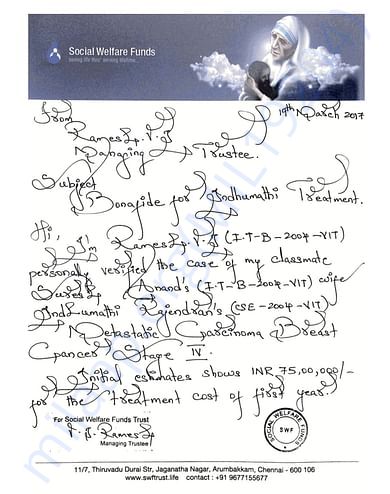 Social Welfare Funds
saving life thru' serving lifetime...
From
19th March 2017
Ramesh. V.J
Managing Trustee.
Subject
Bonafide for Indhumathi Treatment.
Hi,
I'm Ramesh. V.J (I.T-B-2004-VIT)
personally verified the case of my classmate
Suresh Anand's (I.T-B-2004-VIT) wife
Indhumathi Rajendran's (CSE-2004-VIT)
Metastatic Carcinoma Breast
Cancer Stage IV.
Initial estimates shows INR 75,00,000/-
for the treatment cost of first year.
For Social Welfare Funds Trust
V. J. Ramesh
Managing Trustee
SOCIAL WELFARE FUNDS
SWF
11/7, Thiruvadu Durai Str, Jaganatha Nagar, Arumbakkam, Chennai - 600 106
www.swftrust.life contact : +91 9677155677